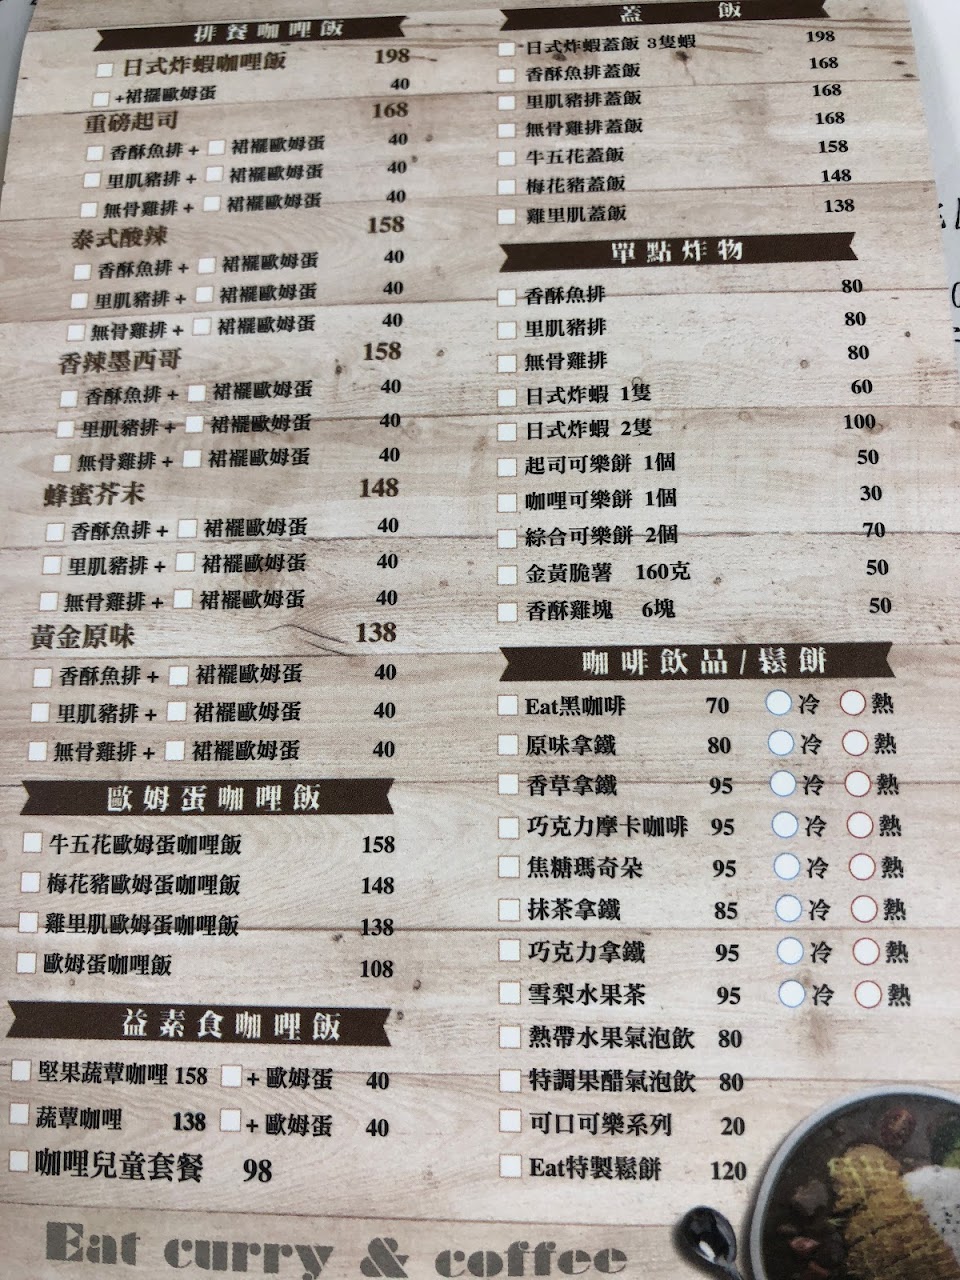 排餐咖哩飯
日式炸蝦咖哩飯 198
+裙襬歐姆蛋 40
重磅起司 168
香酥魚排 + 裙襬歐姆蛋 40
里肌豬排 + 裙襬歐姆蛋 40
無骨雞排 + 裙襬歐姆蛋 40
泰式酸辣 158
香酥魚排 + 裙襬歐姆蛋 40
里肌豬排 + 裙襬歐姆蛋 40
無骨雞排 + 裙襬歐姆蛋 40
香辣墨西哥 158
香酥魚排 + 裙襬歐姆蛋 40
里肌豬排 + 裙襬歐姆蛋 40
無骨雞排 + 裙襬歐姆蛋 40
蜂蜜芥末 148
香酥魚排 + 裙襬歐姆蛋 40
里肌豬排 + 裙襬歐姆蛋 40
無骨雞排 + 裙襬歐姆蛋 40
黃金原味 138
香酥魚排 + 裙襬歐姆蛋 40
里肌豬排 + 裙襬歐姆蛋 40
無骨雞排 + 裙襬歐姆蛋 40
歐姆蛋咖哩飯
牛五花歐姆蛋咖哩飯 158
梅花豬歐姆蛋咖哩飯 148
雞里肌歐姆蛋咖哩飯 138
歐姆蛋咖哩飯 108
益素食咖哩飯
堅果蔬蕈咖哩 158 + 歐姆蛋 40
蔬蕈咖哩 138 + 歐姆蛋 40
咖哩兒童套餐 98
蓋飯
日式炸蝦蓋飯 3隻蝦 198
香酥魚排蓋飯 168
里肌豬排蓋飯 168
無骨雞排蓋飯 168
牛五花蓋飯 158
梅花豬蓋飯 148
雞里肌蓋飯 138
單點炸物
香酥魚排 80
里肌豬排 80
無骨雞排 80
日式炸蝦 1隻 60
日式炸蝦 2隻 100
起司可樂餅 1個 50
咖哩可樂餅 1個 30
綜合可樂餅 2個 70
金黃脆薯 160克 50
香酥雞塊 6塊 50
咖啡飲品/鬆餅
Eat黑咖啡 70 冷 熱
原味拿鐵 80 冷 熱
香草拿鐵 95 冷 熱
巧克力摩卡咖啡 95 冷 熱
焦糖瑪奇朵 95 冷 熱
抹茶拿鐵 85 冷 熱
巧克力拿鐵 95 冷 熱
雪梨水果茶 95 冷 熱
熱帶水果氣泡飲 80
特調果醋氣泡飲 80
可口可樂系列 20
Eat特製鬆餅 120
Eat curry & coffee